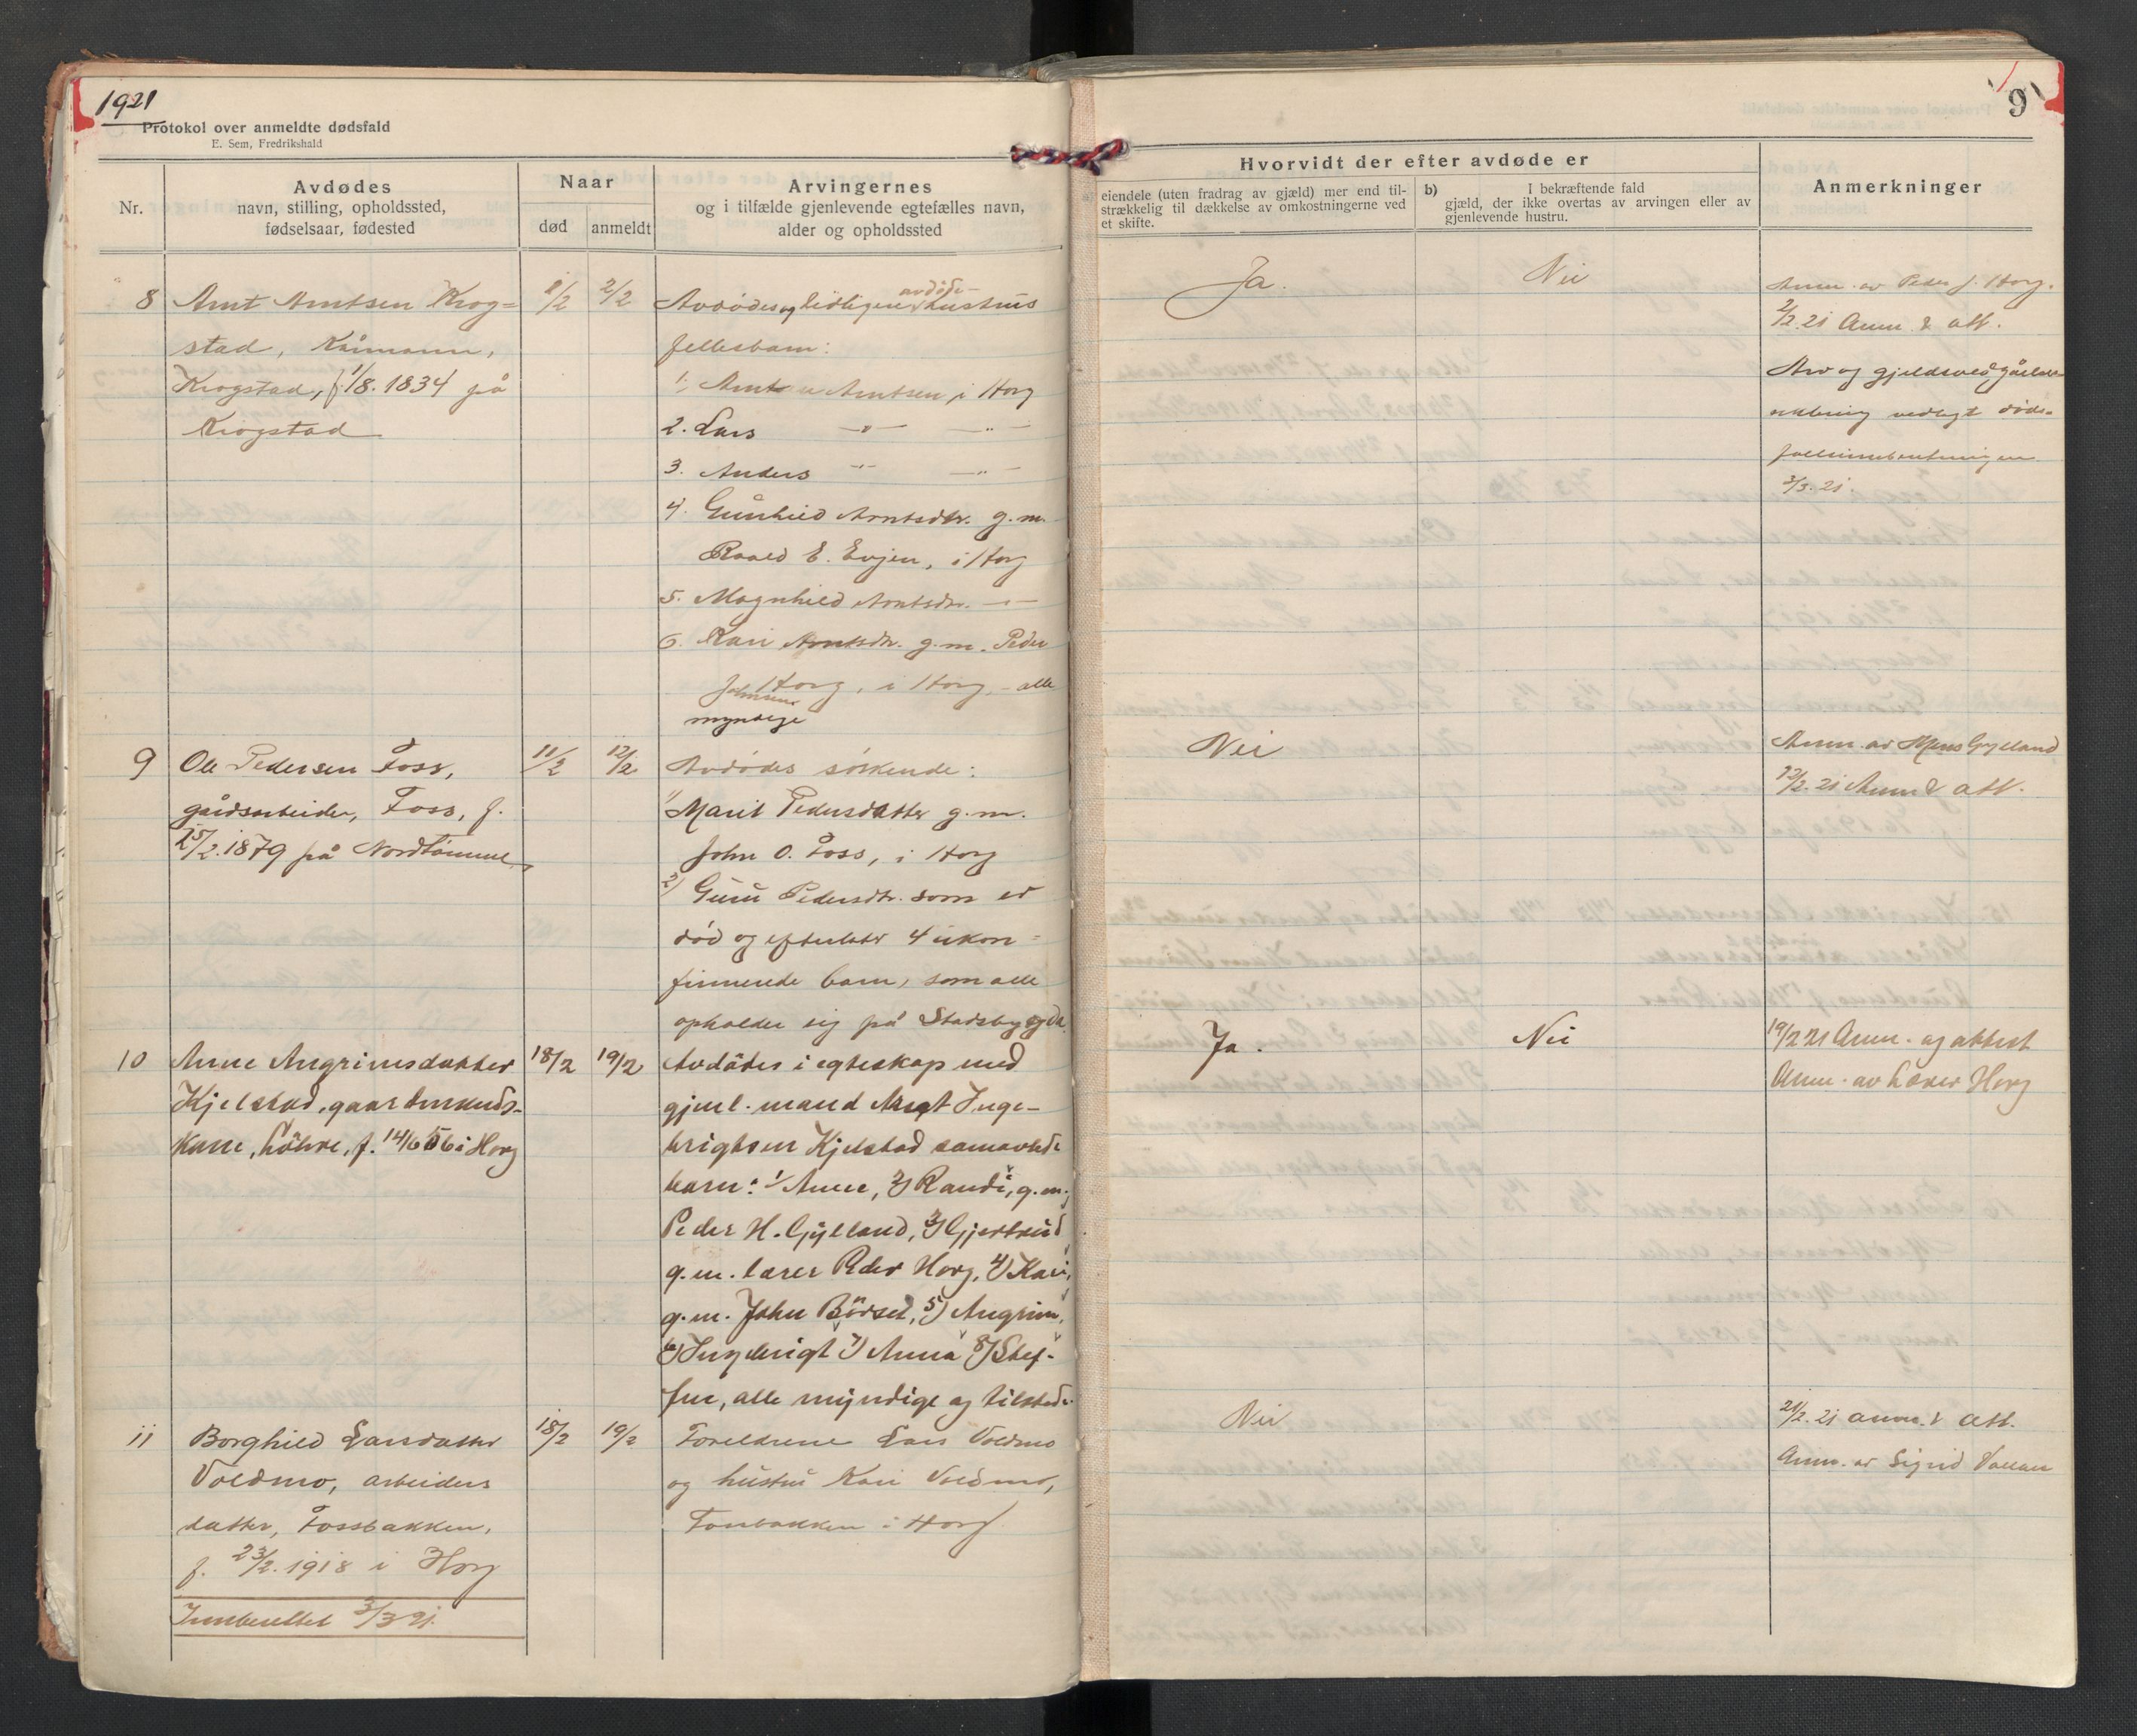 1921
Protokol over anmeldte dødsfald
E. Sem, Fredrikshald
Nr.
Avdødes
navn, stilling, opholdssted,
fødselsaar, fødested
Naar
død
anmeldt
Arvingernes
og i tilfælde gjenlevende egtefælles navn,
alder og opholdssted
8
Arnt Arntsen Krog=
stad, Kårmann,
Krogstad, f. 1/8. 1834 på
Krogstad
1/2
2/2
Avdødes og tidligere avdøde hustrus
fellesbarn:
1. Arnt Arntsen, i Horg
2. Lars -"- -"-
3. Anders -"- -"-
4. Gunhild Arntsdtr. g.m.
Roald E. Evjen, i Horg
5. Magnhild Arntsdtr. -"-
6. Kari Arntsdtr. g.m. Peder
Johnsen Horg, i Horg, - alle
myndige
9
Ole Pedersen Foss,
gårdsarbeider, Foss, f.
25/2.1879 på Nordtømme
11/2
12/2
Avdødes søskende:
1) Marit Pedersdatter g.m.
John O. Foss, i Horg
2) Guru Pedersdtr. som er
død og efterlater 4 ukon=
firmerede barn, som alle
opholder sig på Stadsbygda
10
Anne Angrimsdatter
Kjelstad, gaardmands-
kone, Løhre, f. 14/6 56 i Horg
18/2
19/2
Avdødes i egteskap med
gjenl. mand Arnt Inge-
brigtsen Kjelstad samavlede
barn: 1/ Anne, 2) Randi, g.m.
Peder H. Gylland, 3) Gjertrud
g.m. lærer Peder Horg, 4) Kari,
g.m. John Børset, 5) Angrim,
6) Ingebrigt 7) Anna 8) Stef-
fen, alle myndige og tilstede.
11
Borghild Larsdatter
Voldmo, arbeiders
datter, Fossbakken,
f. 23/2.1918 i Horg
18/2
19/2
Foreldrene Lars Voldmo
og hustru Kari Voldmo,
Fossbakken i Horg
Innberettet 3/3 21.
9
Hvorvidt der efter avdøde er
eiendele (uten fradrag av gjæld) mer end til-
strækkelig til dækkelse av omkostningerne ved
et skifte.
b)
I bekræftende fald
gjæld, der ikke overtas av arvingen eller av
gjenlevende hustru.
Anmerkninger
Ja.
Nei
Anm. av Peder J. Horg.
2/2.21 Anm. & att.
Arv og gjeldsvedgåelses
erklæring vedlagt døds-
fallsinnberetningen
3/3.21.
Nei
Anm. av Mons Gylland
12/2.21 Anm & att.
Ja.
Nei
19/2 21 Anm. og attest
Anm. av Lærer Horg
Nei
21/2.21 anm. & att.
Anm. av Sigrid